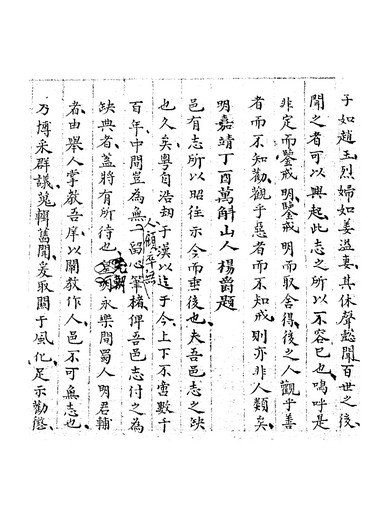 子如趙王烈婦如姜溢妻其休聲懿聞百世之後
聞之者可以興起此志之所以不容已也嗚呼是
非定而鑒戒明鑒戒明而取舍得後之人觀乎善
者而不知勸觀乎惡者而不知戒則亦非人類矣
明嘉靖丁酉萬斛山人楊爵題
邑有志所以昭往示今而垂後也夫吾邑志之缺
也久矣粵自浩劫于漢以迄于今上下不啻數千
百年中間豈為無一留心筆楮俾吾邑志付之為
缺典者蓋將有所待也皇明永樂間蜀人明君輔
者由舉人掌教吾庠以關教作人邑不可無志也
乃博采群議蒐輯舊聞爰取關于風化足示勸懲